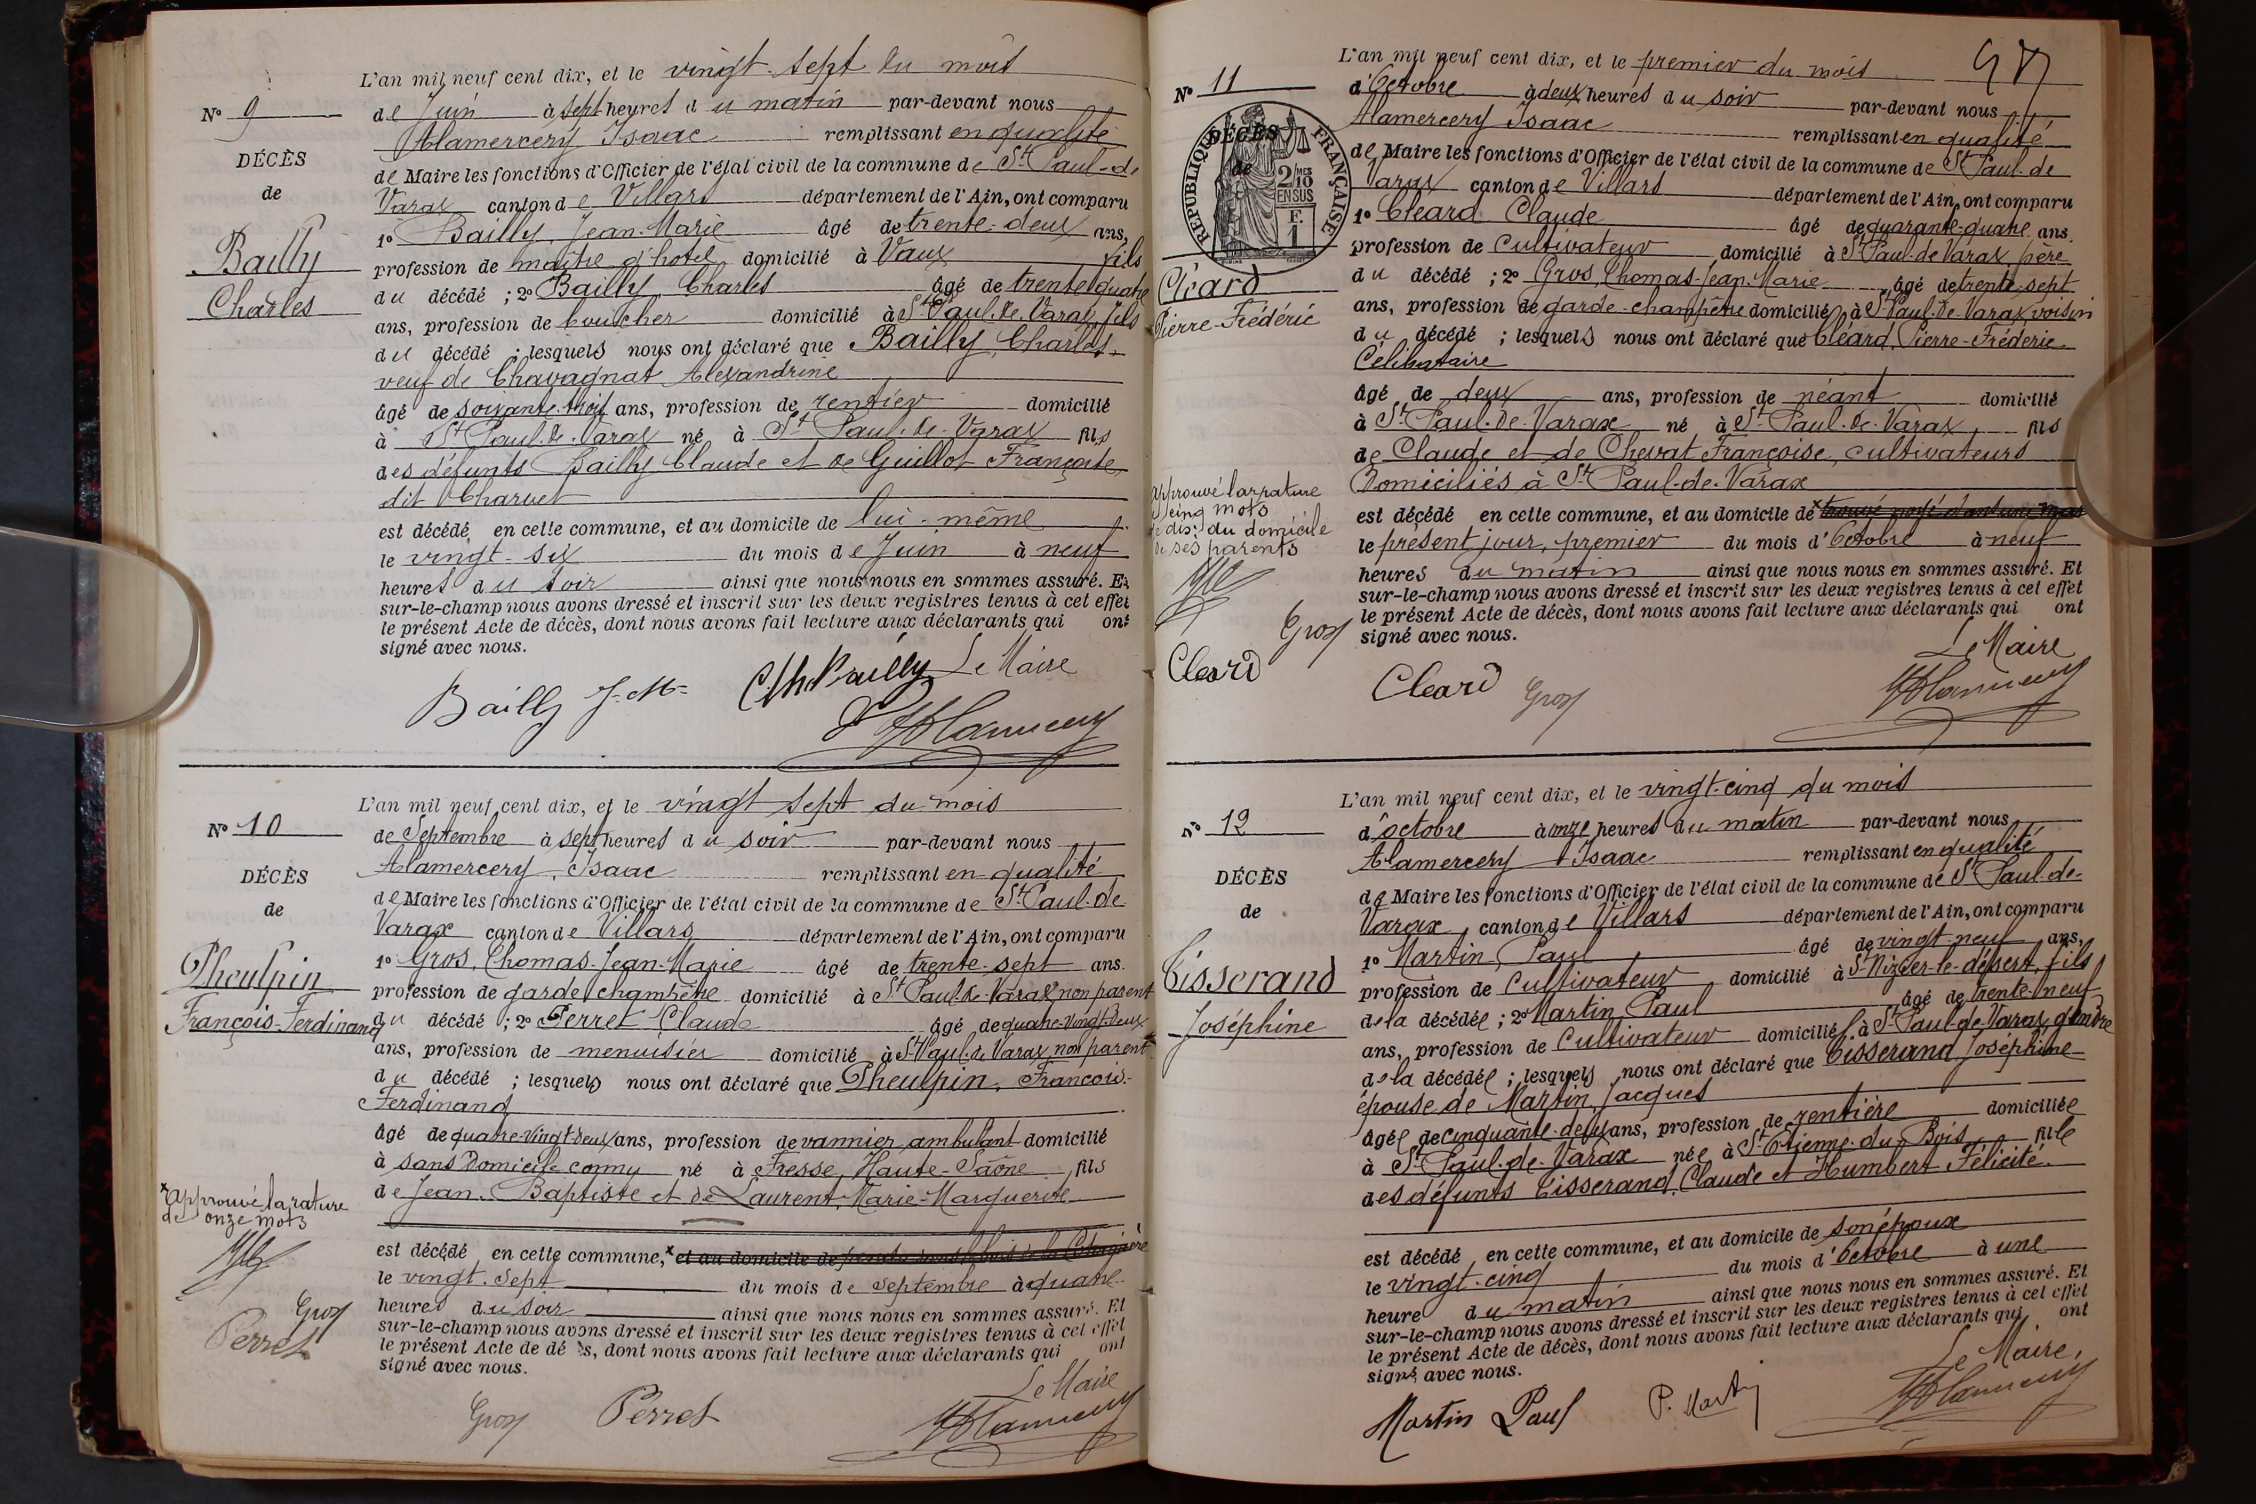 L'an mil neuf cent dix, et le vingt-sept du mois
N° 9
de Juin à sept heures du matin par-devant nous
Alamercery Isaac remplissant en qualité
DÉCÈS
de Maire les fonctions d'Officier de l'état civil de la commune de St Paul-de
de
Varax canton de Villars département de l'Ain, ont comparu
1° Bailly, Jean-Marie âgé de trente-deux ans,
Bailly
profession de maître d'hotel domicilié à Vaux fils
Charles
du décédé ; 2° Bailly, Charles âgé de trente-quatre
ans, profession de boucher domicilié à St Paul-de-Varax, fils
du décédé ; lesquels nous ont déclaré que Bailly, Charles,
veuf de Chavagnat Alexandrine
âgé de soixante-trois ans, profession de rentier domicilié
à St Paul-de-Varax né à St Paul-de-Varax fils
des défunts Bailly Claude et de Guillot Françoise
dit Charvet
est décédé en cette commune, et au domicile de lui-même
le vingt-six du mois de Juin à neuf
heures du soir ainsi que nous nous en sommes assuré. Et
sur-le-champ nous avons dressé et inscrit sur les deux registres tenus à cet effet
le présent Acte de décès, dont nous avons fait lecture aux déclarants qui ont
signé avec nous.
Bailly J-M= Ch. Bailly Le Maire
L'an mil neuf cent dix, et le vingt sept du mois
N° 10
de Septembre à sept heures du soir par-devant nous
Alamercery, Isaac remplissant en qualité
DÉCÈS
de Maire les fonctions d'Officier de l'état civil de la commune de St Paul-de
de
Varax canton de Villars département de l'Ain, ont comparu
1° Gros, Thomas-Jean-Marie âgé de trente-sept ans.
Pheulpin
profession de garde champêtre domicilié à St Paul de Varax non parent
François-Ferdinand
du décédé ; 2° Perret Claude âgé de quatre-vingt-deux
ans, profession de menuisier domicilié à St Paul-de Varax, non parent
du décédé ; lesquels nous ont déclaré que Pheulpin, François-
Ferdinand
âgé de quatre-vingt-deux ans, profession de vannier ambulant domicilié
à sans domicile connu né à Fresse, Haute-Saône fils
de Jean-Baptiste et de Laurent, Marie-Marguerite
x approuvé la rature
de onze mots
est décédé en cette commune, x et au domicile de
le vingt-sept du mois de Septembre à quatre
heures du soir ainsi que nous nous en sommes assuré. Et
Gros
sur-le-champ nous avons dressé et inscrit sur les deux registres tenus à cet effet
Perret
le présent Acte de décès, dont nous avons fait lecture aux déclarants qui ont
signé avec nous.
Gros Perret Le Maire
L'an mil neuf cent dix, et le premier du mois
N° 11
d'Octobre à deux heures du soir par-devant nous
Alamercery Isaac remplissant en qualité
DÉCÈS
RÉPUBLIQUE FRANÇAISE
2/10 MES EN SUS
F. 1
de Maire les fonctions d'Officier de l'état civil de la commune de St Paul-de
de
Varax canton de Villars département de l'Ain, ont comparu
1° Cléard Claude âgé de quarante-quatre ans.
profession de cultivateur domicilié à St Paul-de-Varax père
Cléard
du décédé ; 2° Gros, Thomas-Jean-Marie âgé de trente-sept
ans, profession de garde-champêtre domicilié à St Paul-de-Varax voisin
Pierre-Frédéric
du décédé ; lesquels nous ont déclaré que Cléard, Pierre-Fréderic
Célibataire
âgé de deux ans, profession de néant domicilié
à St Paul-de-Varax né à St Paul-de-Varax fils
de Claude et de Chevat Françoise, cultivateurs
Domiciliés à St Paul-de-Varax
approuvé la rature
cinq mots
du domicile
de ses parents
est décédé en cette commune, et au domicile de x
le présent jour, premier du mois d'Octobre à neuf
heures du matin ainsi que nous nous en sommes assuré. Et
sur-le-champ nous avons dressé et inscrit sur les deux registres tenus à cet effet
le présent Acte de décès, dont nous avons fait lecture aux déclarants qui ont
Gros
signé avec nous.
Cleard
Cleard Gros Le Maire
L'an mil neuf cent dix, et le vingt-cinq du mois
N° 12
d'octobre à onze heures du matin par-devant nous
Alamercery Isaac remplissant en qualité
DÉCÈS
de Maire les fonctions d'Officier de l'état civil de la commune de St Paul-de-
de
Varax canton de Villars département de l'Ain, ont comparu
1° Martin, Paul âgé de vingt-neuf ans,
Tisserand
profession de Cultivateur domicilié à St Nizier-le-désert, fils
de la décédée ; 2° Martin Paul âgé de trente-neuf
Joséphine
ans, profession de Cultivateur domicilié à St Paul-de-Varax, gendre
de la décédée ; lesquels nous ont déclaré que Tisserand Joséphine
épouse de Martin Jacques
âgée de cinquante-deux ans, profession de rentière domiciliée
à St Paul-de-Varax née à St Etienne-du-Bois fille
des défunts Tisserand, Claude et Humbert Félicité.
est décédé en cette commune, et au domicile de son époux
le vingt-cinq du mois d'Octobre à une
heure du matin ainsi que nous nous en sommes assuré. Et
sur-le-champ nous avons dressé et inscrit sur les deux registres tenus à cet effet
le présent Acte de décès, dont nous avons fait lecture aux déclarants qui ont
signé avec nous.
Le Maire,
Martin Paul P. Martin